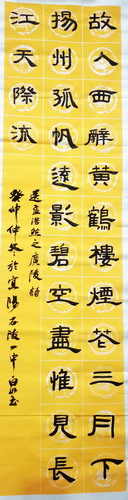 故人西辭黃鶴樓煙花三月下
揚州孤帆遠影碧空盡惟見長
江天際流
孟浩然之廣陵
癸卯仲冬於宜陽石陵一中